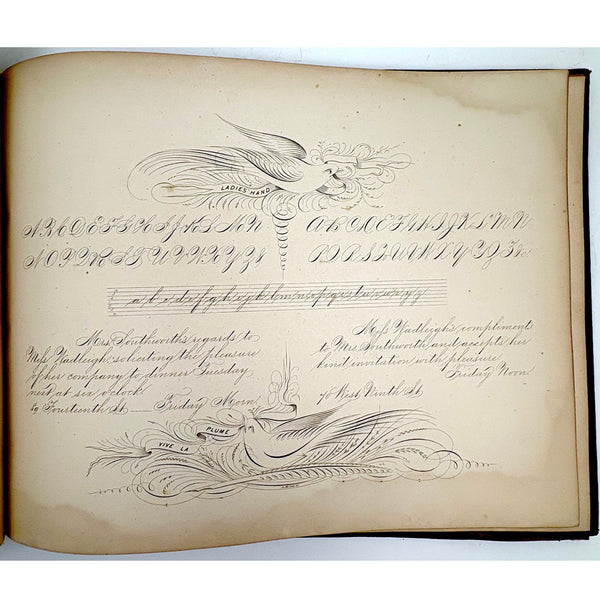 LADIES HAND
A B C D E F G H I J K L M N
O P Q R S T U V W X Y Z &
A B C D E F G H I J K L M N
O P Q R S T U V W X Y Z &c.
a b c d e f g h i j k l m n o p q r s t u v w x y z
Mrs. Southworth's regards to
Miss Wadleigh, soliciting the pleasure
of her company to dinner Tuesday
next at six o'clock.
Fourteenth St. Friday Morn.
Miss Wadleigh's compliments
to Mrs. Southworth, and accepts her
kind invitation with pleasure
Friday Noon.
West Ninth St.
VIVE LA PLUME